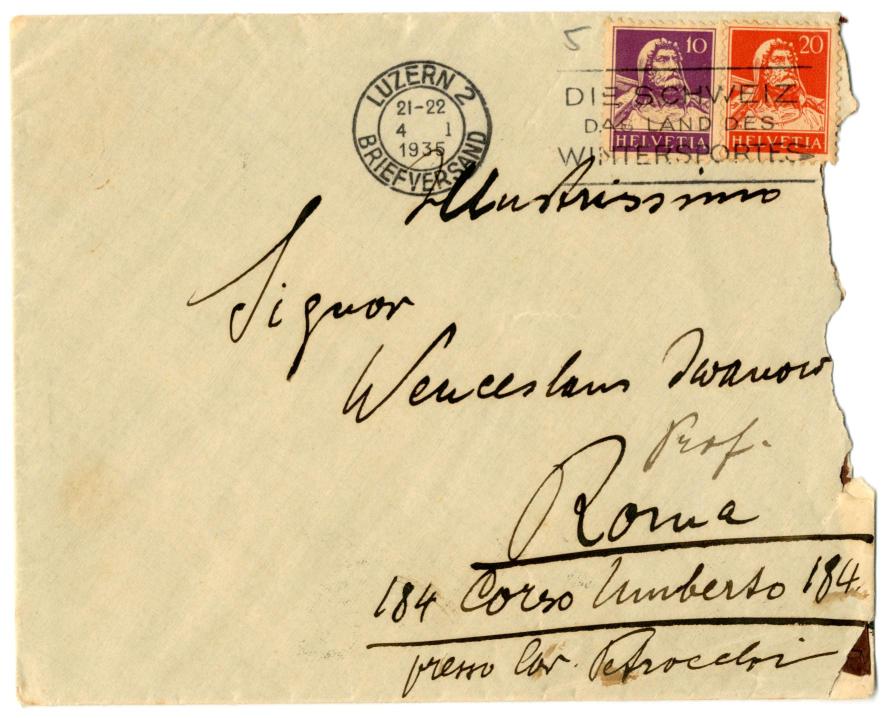 5
10
20
HELVETIA
HELVETIA
LUZERN 2
21-22
4 I
1935
BRIEFVERSAND
DIE SCHWEIZ
DAS LAND DES
WINTERSPORTES
Illustrissimo
Signor
Wenceslaus Iwanow
Prof.
Roma
184 Corso Umberto 184.
presso Cav. Petrocchi